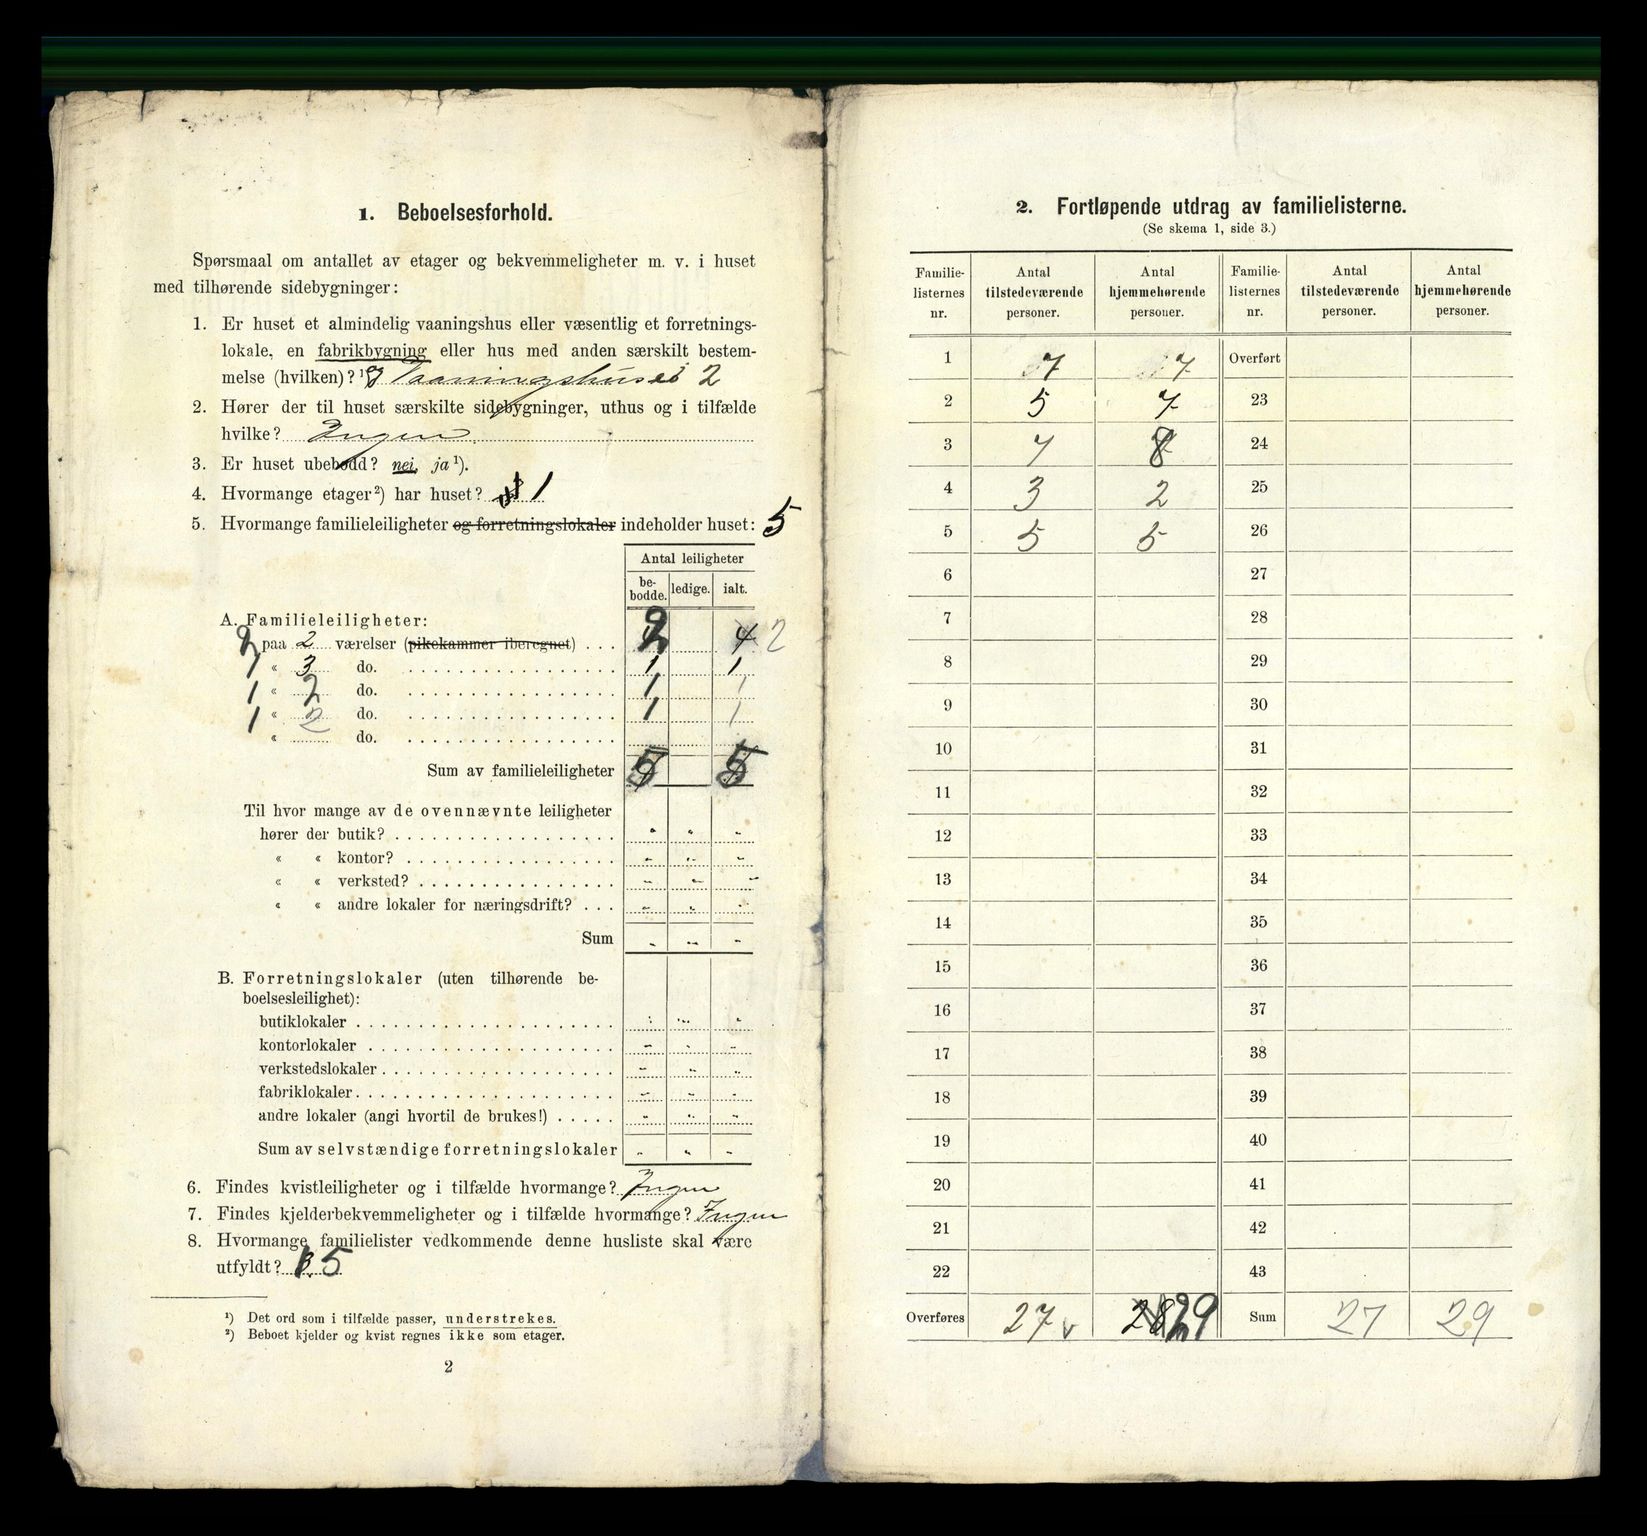 1. Beboelsesforhold.
Spørsmaal om antallet av etager og bekvemmeligheter m. v. i huset
med tilhørende sidebygninger:
1. Er huset et almindelig vaaningshus eller væsentlig et forretnings-
lokale, en fabrikbygning eller hus med anden særskilt bestem-
melse (hvilken)? ¹) Vaaningshuset 2
2. Hører der til huset særskilte sidebygninger, uthus og i tilfælde
hvilke? Ingen
3. Er huset ubebodd? nei, ja ¹).
4. Hvormange etager ²) har huset? 1
5. Hvormange familieleiligheter og forretningslokaler indeholder huset: 5
Antal leiligheter
be-
bodde. ledige. ialt.
A. Familieleiligheter:
2 paa 2 værelser (pikekammer iberegnet) . . . 2 4 2
1 « 3 do. 1 1
1 « 2 do. 1 1
1 « 2 do. 1 1
« do.
Sum av familieleiligheter 5 5
Til hvor mange av de ovennævnte leiligheter
hører der butik? . . . " " "
« « kontor? . . . " " "
« « verksted? . . . " " "
« « andre lokaler for næringsdrift? . . . " " "
Sum " " "
B. Forretningslokaler (uten tilhørende be-
boelsesleilighet):
butiklokaler . . . " " "
kontorlokaler . . . " " "
verkstedslokaler . . . " " "
fabriklokaler . . . " " "
andre lokaler (angi hvortil de brukes!) . . . " " "
Sum av selvstændige forretningslokaler " " "
6. Findes kvistleiligheter og i tilfælde hvormange? Ingen
7. Findes kjelderbekvemmeligheter og i tilfælde hvormange? Ingen
8. Hvormange familielister vedkommende denne husliste skal være
utfyldt? 5
¹) Det ord som i tilfælde passer, understrekes.
²) Beboet kjelder og kvist regnes ikke som etager.
2
2. Fortløpende utdrag av familielisterne.
(Se skema 1, side 3.)
Familie- Antal Antal Familie- Antal Antal
listernes tilstedeværende hjemmehørende listernes tilstedeværende hjemmehørende
nr. personer. personer. nr. personer. personer.
1 7 7 Overført
2 5 7 23
3 7 8 24
4 3 2 25
5 5 5 26
6 27
7 28
8 29
9 30
10 31
11 32
12 33
13 34
14 35
15 36
16 37
17 38
18 39
19 40
20 41
21 42
22 43
Overføres 27 v 28 29 Sum 27 29